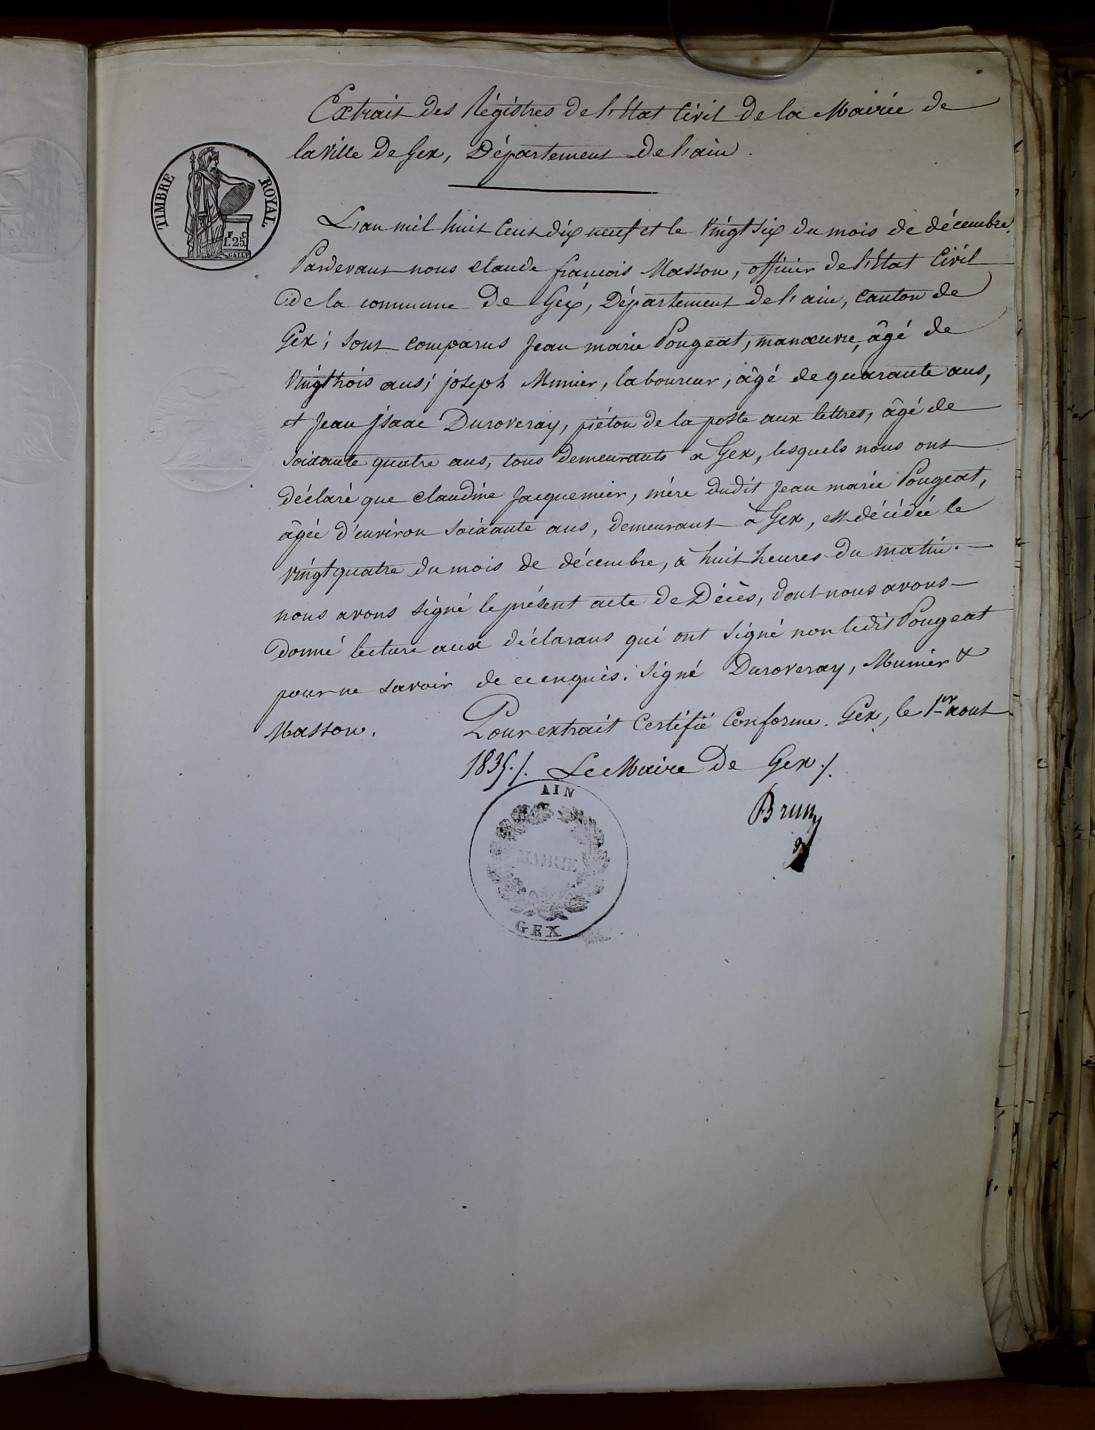 Extrait des Régistres de l'Etat Civil de la Mairie de
la Ville de Gex, Département de l'ain.
TIMBRE ROYAL
1F. 25C
L'an mil huit Cent dix neuf et le Vingt six du mois de décembre,
Pardevant nous claude francois Masson, officier de l'Etat Civil
de la commune De Gex, Département de l'ain, Canton de
Gex; sont comparus Jean marie Pougeat, manœuvre, âgé de
Vingt trois ans; joseph Munier, laboureur, âgé de quarante ans,
et Jean jsaac Duroveray, piéton de la poste aux lettres, âgé de
soixante quatre ans, tous demeurants à Gex, lesquels nous ont
déclaré que claudine Jacquemier, mère dudit Jean marie Pougeat,
âgée d'environ soixante ans, demeurant à Gex, est décédée le
vingt quatre du mois de décembre, à huit heures du matin.
nous avons signé le présent acte de Décès, dont nous avons
donné lecture aux déclarans qui ont signé non ledit Pougeat
pour ne savoir de ce enquis. Signé Duroveray, Munier &
Masson.
Pour extrait Certifié Conforme. Gex, le 1er aout
1835./. Le Maire De Gex./.
AIN
MAIRIE
GEX
Brun